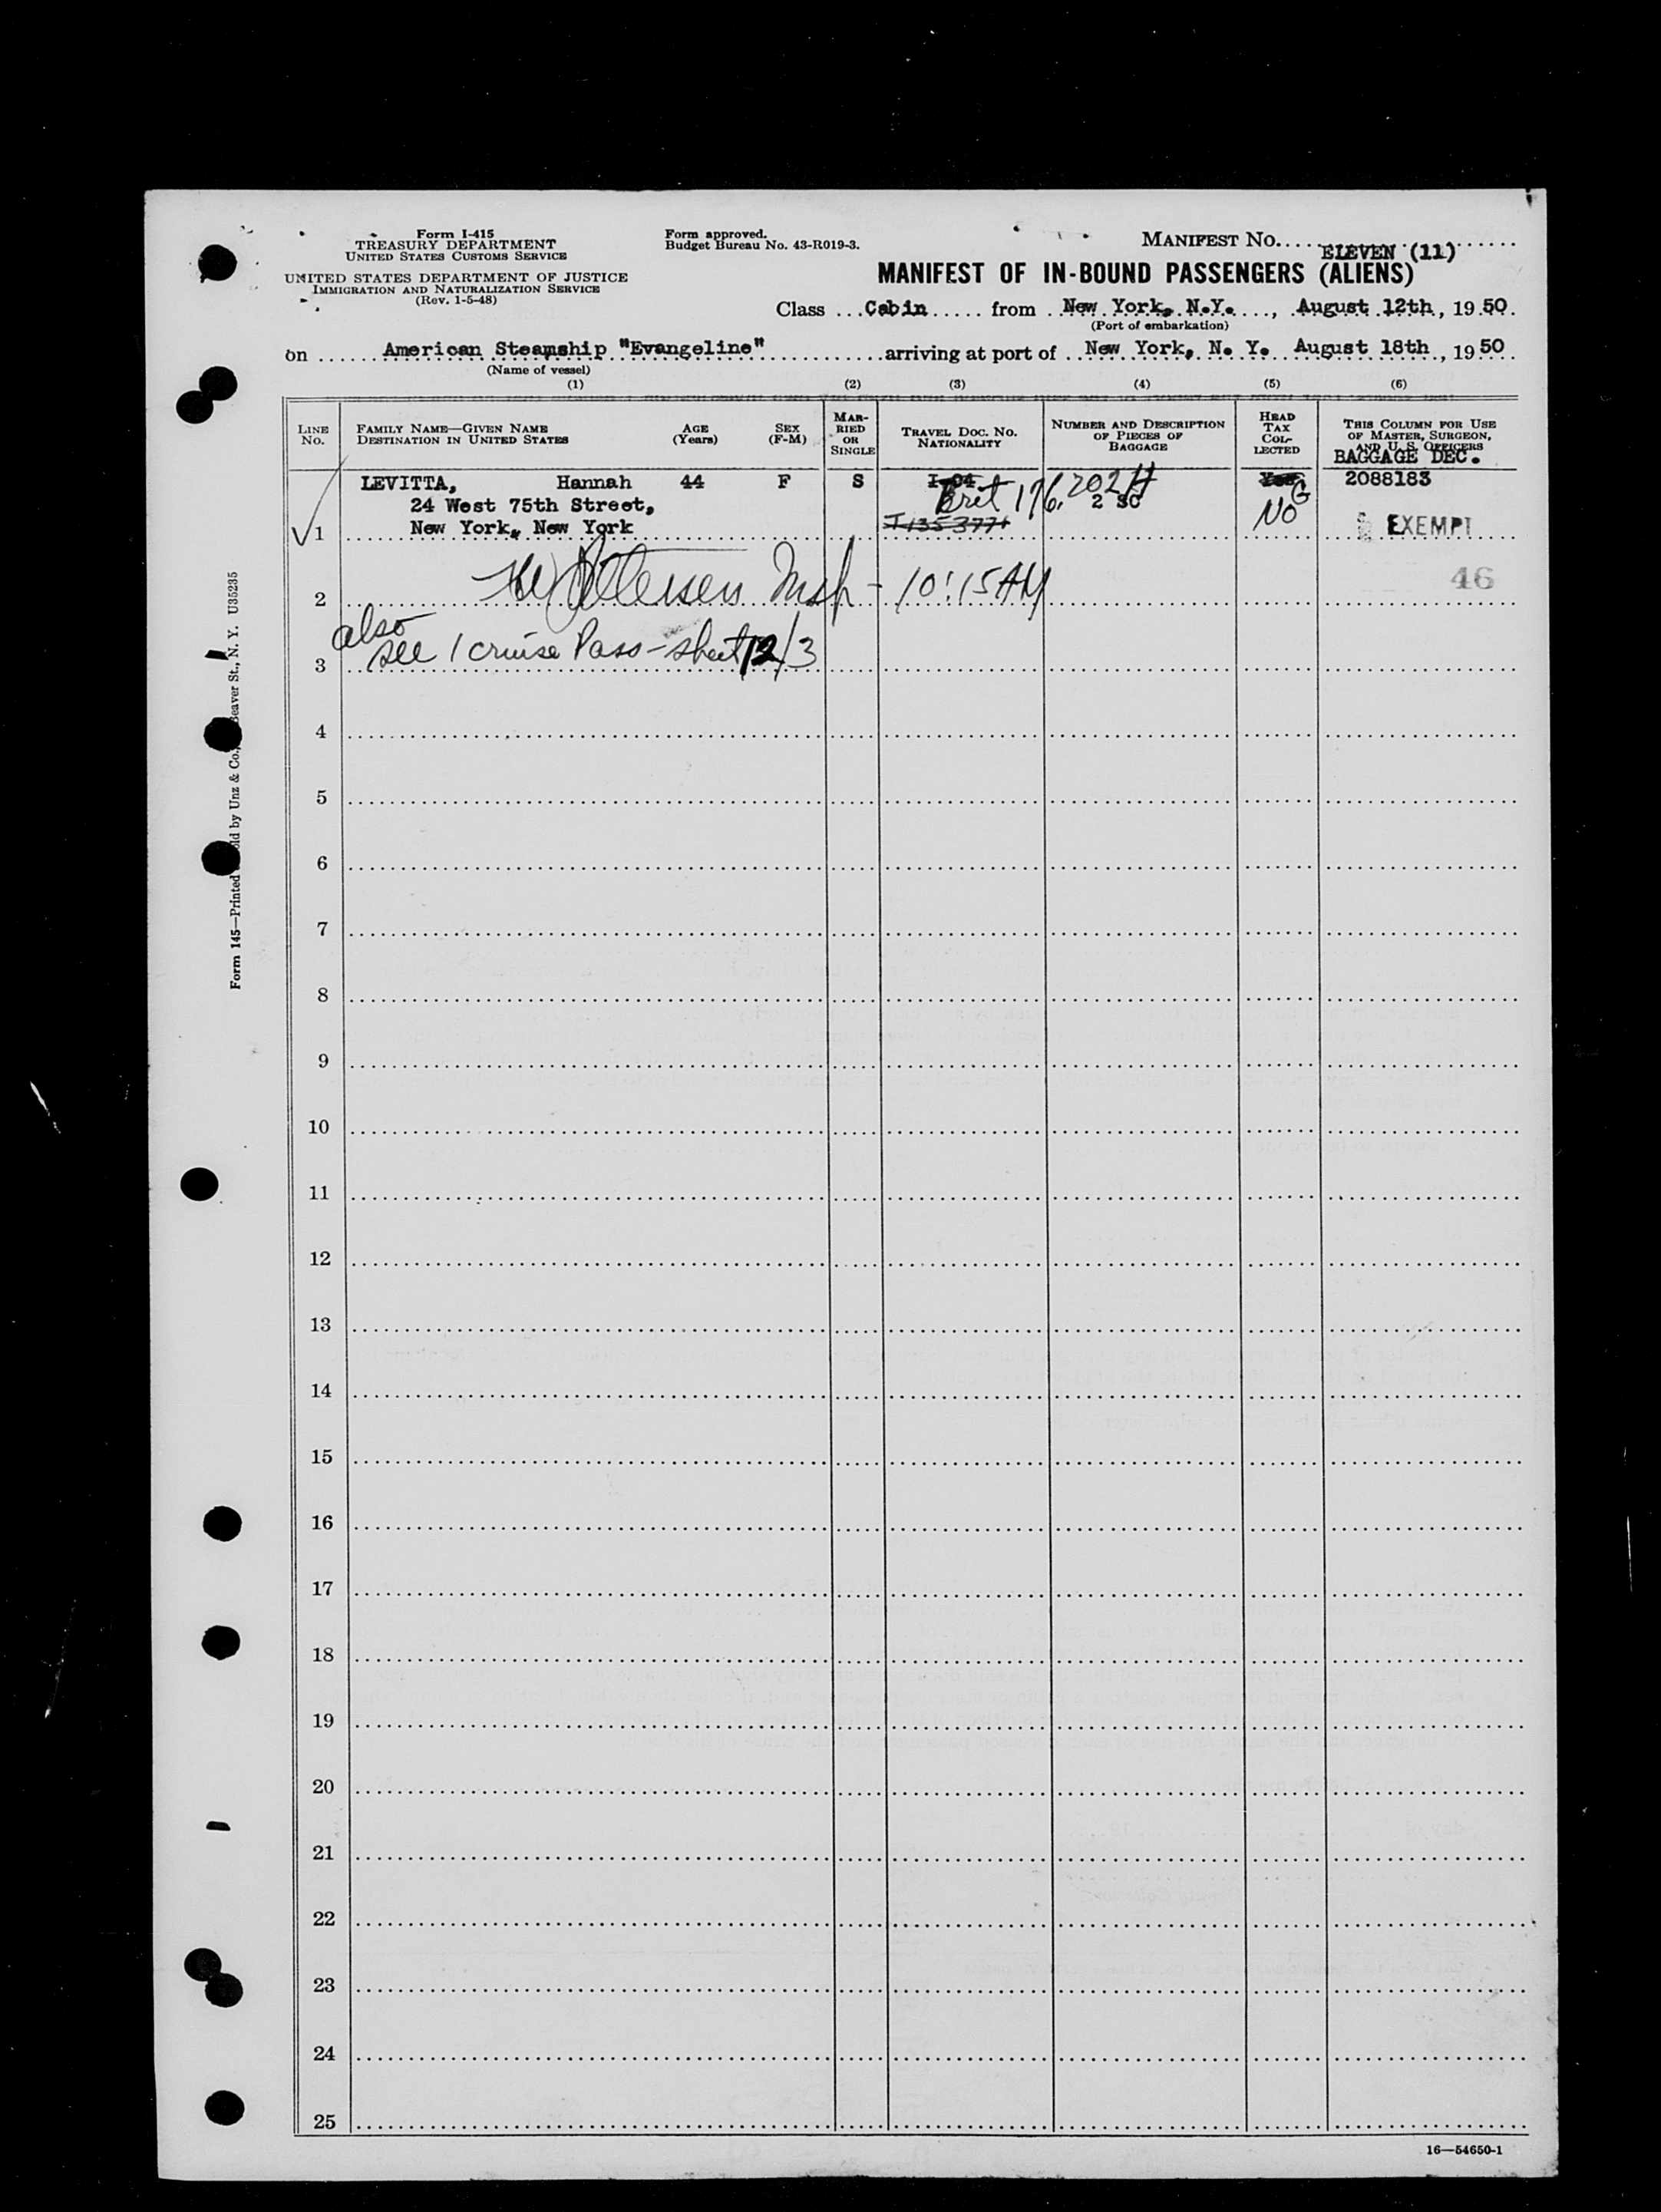 Form I-415
TREASURY DEPARTMENT
UNITED STATES CUSTOMS SERVICE
UNITED STATES DEPARTMENT OF JUSTICE
IMMIGRATION AND NATURALIZATION SERVICE
(Rev. 1-5-48)
Form approved.
Budget Bureau No. 43-R019-3.
MANIFEST NO. ELEVEN (11)
MANIFEST OF IN-BOUND PASSENGERS (ALIENS)
Class Cabin from New York, N.Y., August 12th, 1950.
(Port of embarkation)
on American Steamship "Evangeline" arriving at port of New York, N. Y. August 18th, 1950
(Name of vessel)
(1) (2) (3) (4) (5) (6)
LINE No.
FAMILY NAME—GIVEN NAME
DESTINATION IN UNITED STATES
AGE (Years)
SEX (F-M)
MARRIED OR SINGLE
TRAVEL DOC. NO. NATIONALITY
NUMBER AND DESCRIPTION OF PIECES OF BAGGAGE
HEAD TAX COLLECTED
THIS COLUMN FOR USE OF MASTER, SURGEON, AND U. S. OFFICERS
BAGGAGE DEC.
LEVITTA, Hannah 44 F S I-04 Brit 176,202 H Yes 2088183
24 West 75th Street, 2 SC G
1 New York, New York I-1353771 No EXEMPT
2 Insp - 10:15 AM 46
also
3 see 1 cruise Pass - sheet 12/3
4
5
6
7
8
9
10
11
12
13
14
15
16
17
18
19
20
21
22
23
24
25
16—54650-1
Form 145—Printed by Unz & Co., Beaver St., N. Y. U35235